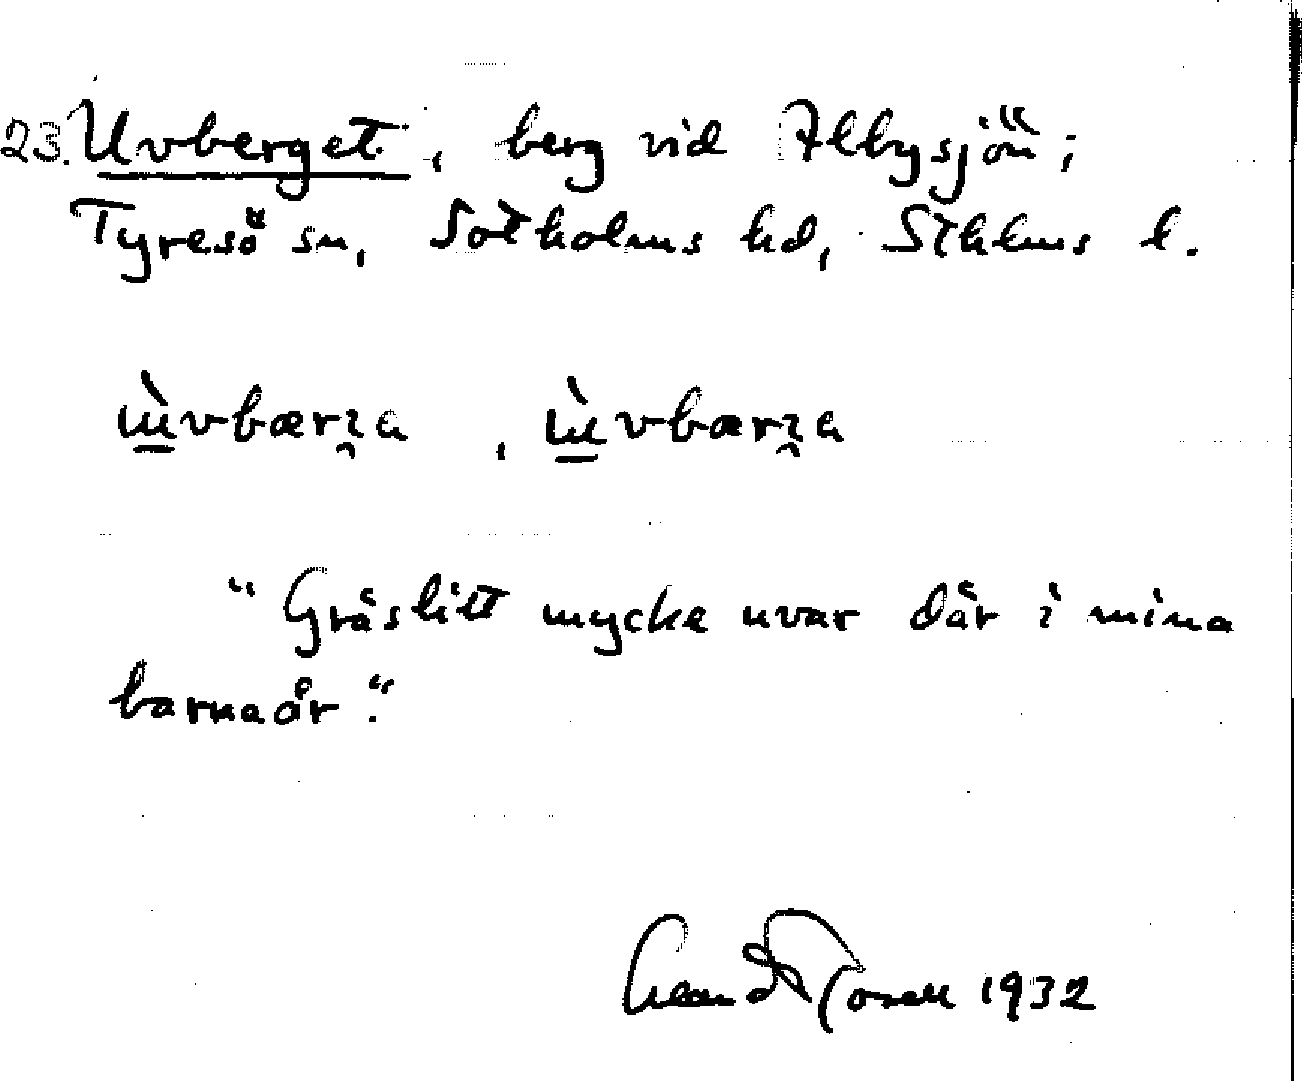 23. Uvberget, berg vid Albysjön;
Tyresö sn, Sotholms hd, Sthlms l.
ɯ̀vbærʒa, ɯ̀vbærʒa
"Gräsligt mycke uvar där i mina
barnaår."
1932